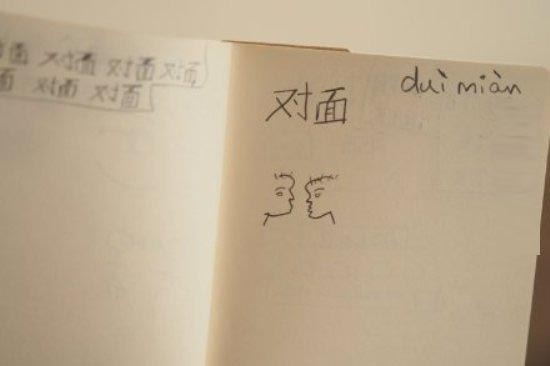 面 对面 对面 对面
面 对面 对面
对面 duì miàn